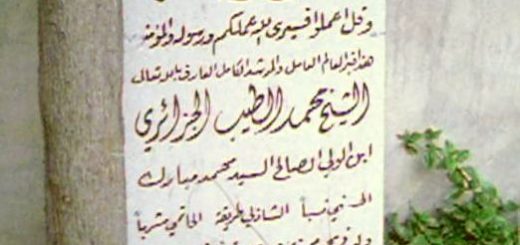 وقل اعملوا فسيرى الله عملكم ورسوله والمؤمنون
هذا قبر العالم العامل والمرشد الكامل العارف بالله تعالى
الشيخ محمد الطيب الجزائري
ابن الولي الصالح السيد محمد مبارك
الحسني نسباً الشاذلي طريقة الحاتمي مشرباً